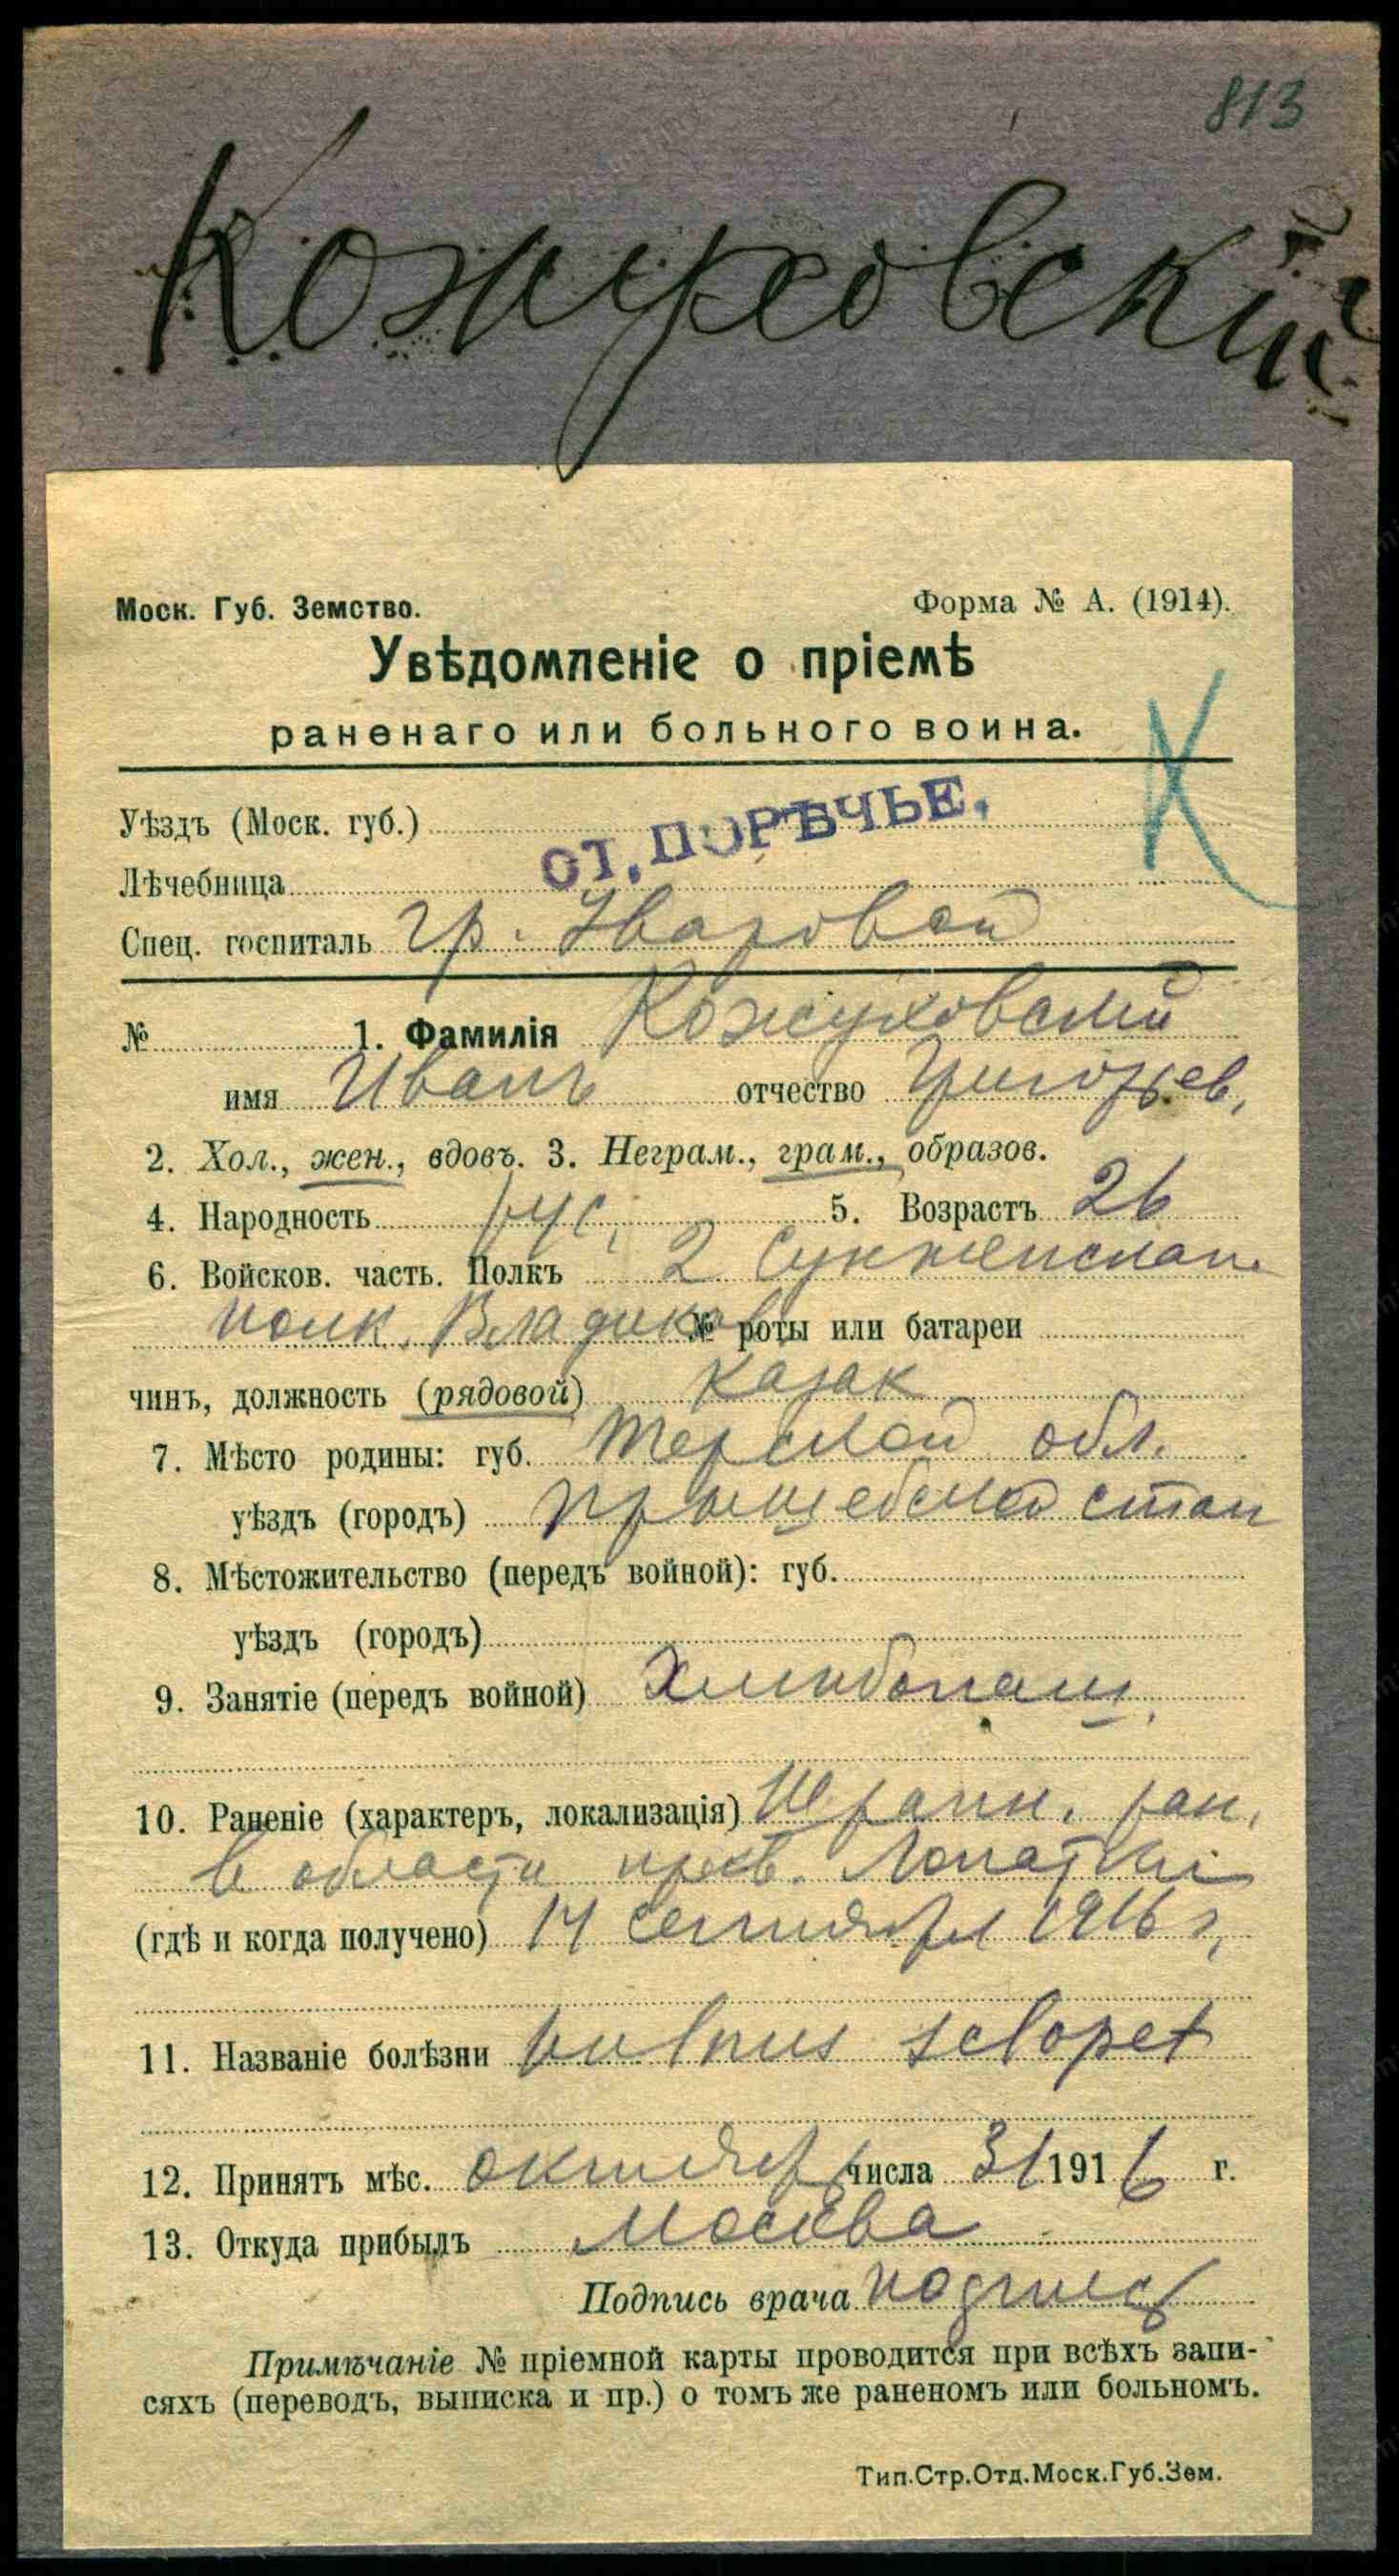 813
Кожуховский
Моск. Губ. Земство.
Форма № А. (1914).
Увѣдомленіе о пріемѣ
раненаго или больного воина.
К
Уѣздъ (Моск. губ.)
ст. ПОРѢЧЬЕ.
Лѣчебница
Спец. госпиталь гр. Уваровой
№ 1. Фамилія Кожуховский
имя Иванъ отчество Григорьев.
2. Хол., жен., вдовъ. 3. Неграм., грам., образов.
4. Народность рус. 5. Возрастъ 26
6. Войсков. часть. Полкъ 2 Сунженский
полк. Владиков № роты или батареи
чинъ, должность (рядовой) казак
7. Мѣсто родины: губ. Терской обл.
уѣздъ (городъ) стан
8. Мѣстожительство (передъ войной): губ.
уѣздъ (городъ)
9. Занятіе (передъ войной) Хлибопаш.
10. Раненіе (характеръ, локализація) Шрапн. ран.
в области прав. Лопатки
(гдѣ и когда получено) 14 сентября 1916 г.
11. Названіе болѣзни vulnus sclopet
12. Принятъ мѣс. октябрь числа 31 1916 г.
13. Откуда прибылъ Москва
Подпись врача подпись
Примѣчаніе № пріемной карты проводится при всѣхъ запи-
сяхъ (переводъ, выписка и пр.) о томъ же раненомъ или больномъ.
Тип.Стр.Отд.Моск.Губ.Зем.